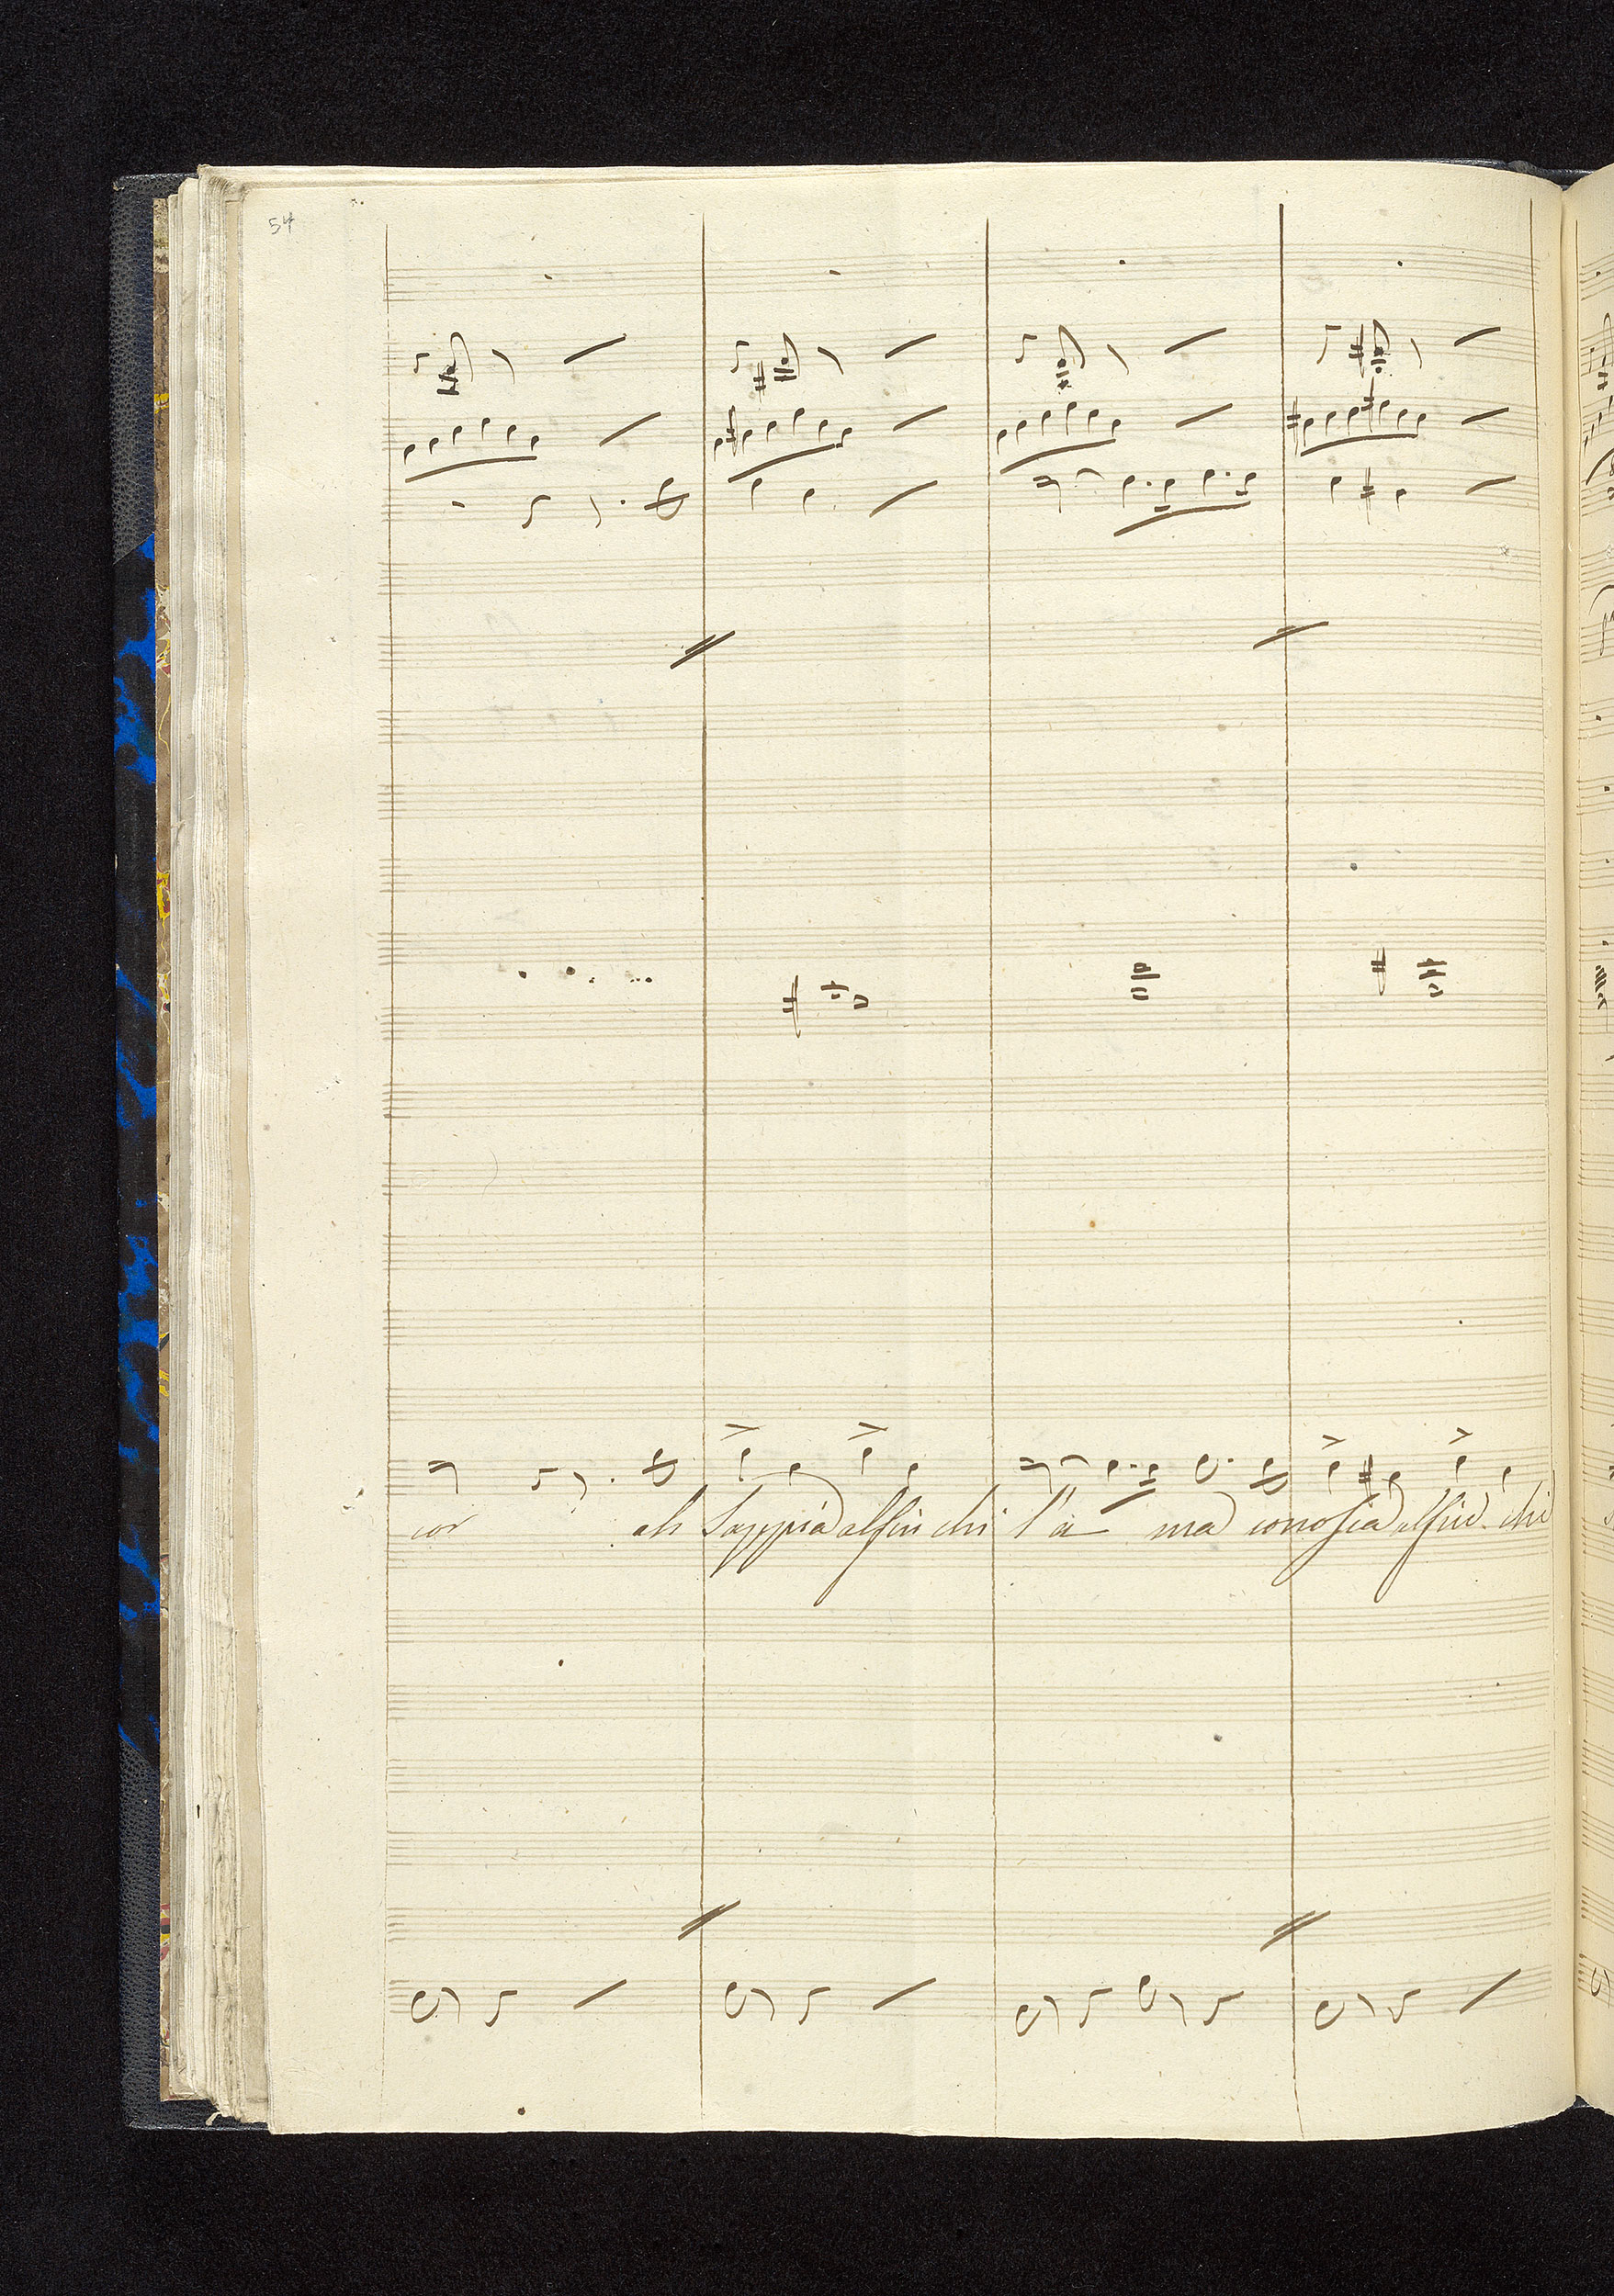 54
cor ah Sappia alfin chi l'a ma conosca alfin chi